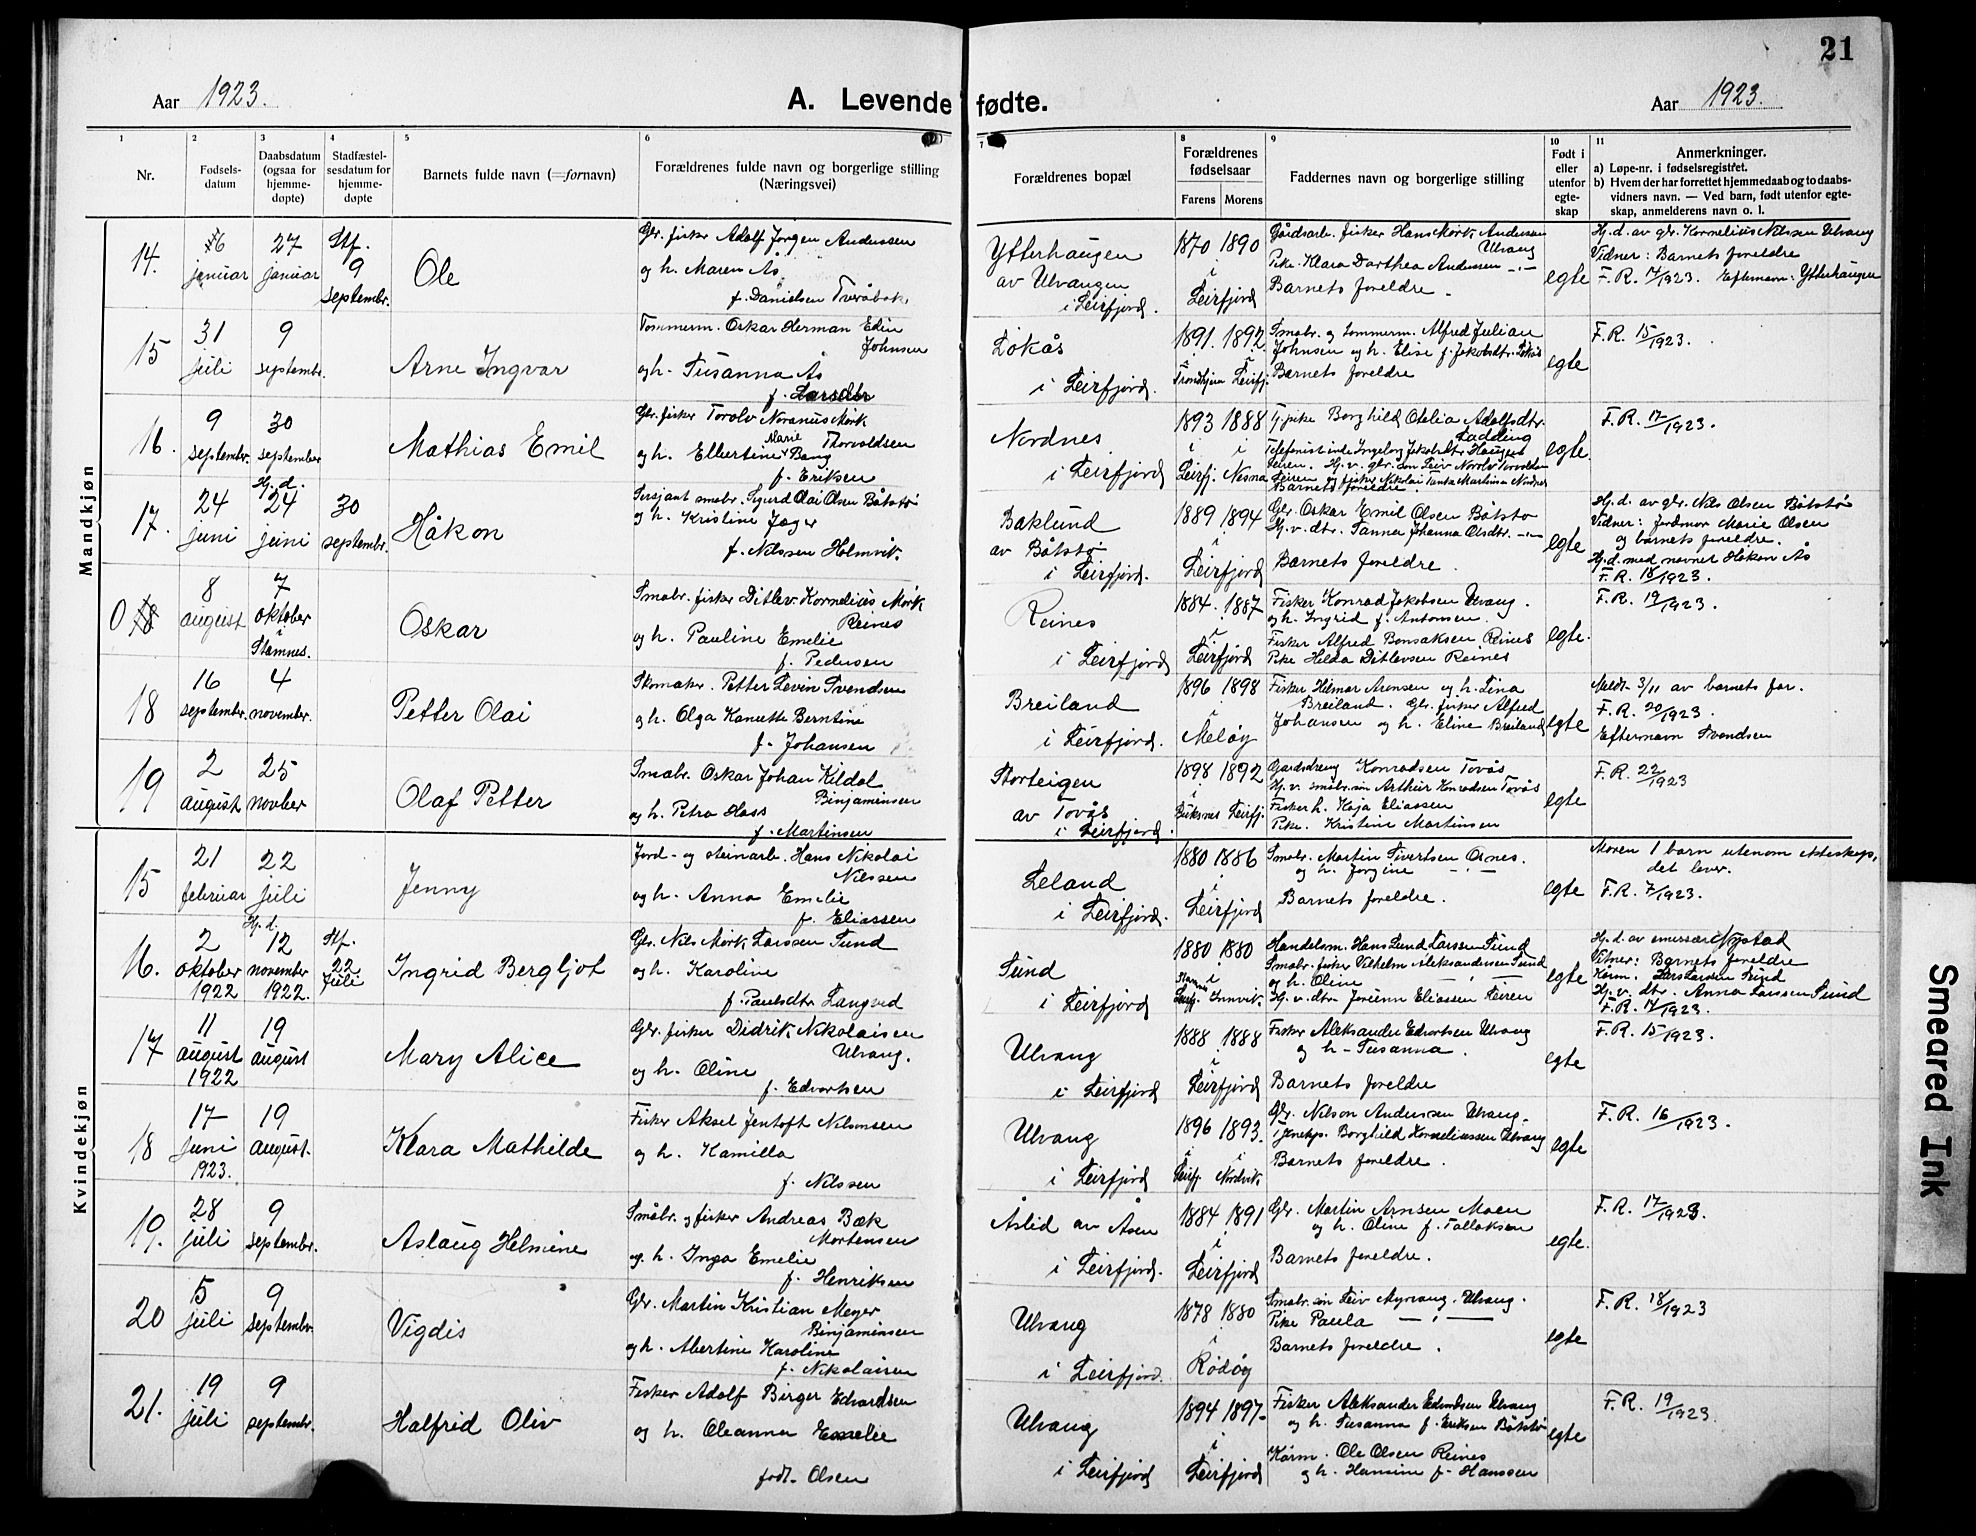 21
Aar 1923.
A. Levende fødte.
Aar 1923.
1
Nr.
2
Fødsels-
datum
3
Daabsdatum
(ogsaa for
hjemme-
døpte)
4
Stadfæstel-
sesdatum for
hjemme-
døpte
5
Barnets fulde navn (=fornavn)
6
Forældrenes fulde navn og borgerlige stilling
(Næringsvei)
7
Forældrenes bopæl
8
Forældrenes
fødselsaar
Farens Morens
9
Faddernes navn og borgerlige stilling
10
Født i
eller
utenfor
egte-
skap
11
Anmerkninger.
a) Løpe-nr. i fødselsregistret.
b) Hvem der har forrettet hjemmedaab og to daabs-
vidners navn. — Ved barn, født utenfor egte-
skap, anmelderens navn o. l.
Mandkjøn
14.
6
januar
27
januar
Stf.
9
septembr.
Ole
Gbr. fisker Adolf Jørgen Andersen
og h. Maren Ås
f. Danielsen Tveråbak.
Ytterhaugen
av Ulvangen
i Leirfjord.
1870 1890
i
Leirfjord
Gårdsarb. fisker Hans Mørk Andersen
Ulvang
Pike Klara Dorthea Andersen -"-
Barnets foreldre.
egte
Hj. d. av gbr. Kornelius Nilsen Ulvang
Vidner: Barnets foreldre
F. R. 14/1923. Efternavn: Ytterhaugen
15
31
juli
9
septembr.
Arne Ingvar
Tømmerm. Oskar Herman Edin
Johnsen
og h. Susanna Ås
f. Larsdtr
Løkås
i Leirfjord.
1891. 1892
i i
Trondhjem Leirfj.
Småbr. og tømmerm. Alfred Julian
Johnsen og h. Elise f. Jakobsdtr. Løkås
Barnets foreldre
egte
F. R. 15/1923.
16.
9
septembr.
30
september
Mathias Emil
Gbr. fisker Torolv Noranus Mørk
Thorvaldsen
og h. Ellertine Marie Bang
f. Eriksen
Nordnes
i Leirfjord
1893 1888
i i
Leirfj. Nesna
Tj. pike Borghild Otelia Adolfsdtr.
Ladding
egte
F. R. 17/1923.
17.
24
juni
Hj. d.
24
juni
30
septembr.
Håkon
Sersjant småbr. Sigurd Olai Olsen Båtstø
og h. Kristine Jæger
f. Nilssen Holmvik.
Baklund
av Båtstø
i Leirfjord.
1889 1894
i
Leirfjord
Gbr. Oskar Emil Olsen Båtstø
Hj. v. dtr. Sanna Johanna Olsdtr. -"-
Barnets foreldre.
egte
Hj. d. av gbr. Nils Olsen Båtstø
Vidner: Jordmor Marie Olsen
og barnets foreldre.
Hj. d. med navnet Håkon Ås
F. R. 18/1923.
0 18
8
august
7
oktober
i
Stamnes.
Oskar
Småbr. fisker Ditlev Kornelius Mørk
Reines
og h. Pauline Emelie
f. Pedersen
Reines
i Leirfjord
1884. 1887
i
Leirfjord
Fisker Konrad Jakobsen Ulvang.
og h. Ingrid f. Antonsen.
Fisker Alfred Bonsaksen Reines
Pike Helda Ditlevsen Reines
egte.
F. R. 19/1923.
18
16
september
4
november.
Petter Olai
Skomaker. Petter Levin Svendsen
og h. Olga Hanette Berntine
f. Johansen
Breiland
i Leirfjord.
1896 1898
Meløy
Fisker Hilmar Arensen og h. Lina
Breiland. Gbr. fisker Alfred
Johansen og h. Eline Breiland
egte
Meldt 3/11 av barnets far.
F. R. 20/1923.
Efternavn Svendsen
19
2
august
25
novber
Olaf Petter
Småbr. Oskar Johan Kildal
Binjaminsen
og h. Petra Hass
f. Martinsen
Storteigen
av Tovås
i Leirfjord.
1898 1892
i
Buksnes Leirfj.
Gardsdreng Konradsen Tovås
Hj. v. småbr. søn Arthur Konradsen Tovås
Fisker h. Kaja Eliassen
Pike. Kristine Martinsen
egte
F. R. 22/1923
Kvindekjøn
15
21
februar
22
juli
Jenny
Jord- og steinarb. Hans Nikolai
Nilssen
og h. Anna Emelie
f. Eliassen
Leland
i Leirfjord.
1880 1886
i
Leirfjord
Småbr. Martin Sivertsen Osnes.
og h. Jørgine -"-
Barnets foreldre.
egte
Moren 1 barn utenom ekteskap,
det lever.
F. R. 7/1923.
16.
2
oktober
1922
Hj. d.
12
november
1922.
Stf.
22.
juli
Ingrid Bergljot
Gbr. Nils Mørk Larssen Sund
og h. Karoline
f. Paulsdtr Langved
Sund
i Leirfjord
1880 1880
i
Leirfj. Innvik
Handelsm. Hans Lund Larssen Sund
Småbr. fisker Vilhelm Aleksandersen Sund
og h. Oline
Hj. v. dtr. Jorunn Eliassen Leiren
egte
Hj. d. av emissær Nystad
Vitner: Barnets foreldre
Kårm. Lars Larssen Sund
Hj. v. dtr. Anna Larssen Sund
F. R. 14/1923.
17
11
august
1922
19
august
Mary Alice
Gbr. fisker Didrik Nikolaisen
Ulvang.
og h. Oline
f. Edvartsen
Ulvang
i Leirfjord
1888 1888
i
Leirfjord
Fisker Aleksander Edvartsen Ulvang
og h. Susanna.
Barnets foreldre
egte
F. R. 15/1923.
18
17
juni
1923.
19
august.
Klara Mathilde
Fisker Aksel Jentoft Nilsmsen
og h. Kamilla
f. Nilssen
Ulvang
i Leirfjord
1896 1893.
i i
Leirfj. Nordvik
Gbr. Nilson Andersen Ulvang.
Tjenekp. Borghild Korneliussen Ulvang
Barnets foreldre.
egte
F. R. 16/1923.
19.
28
juli
9
septembr.
Aslaug Helmine
Småbr. og fisker Andreas Bæk
Mortensen
og h. Inga Emelie
f. Henriksen
Åslid av Åsen
i Leirfjord.
1884 1891
i
Leirfjord
Gbr. Martin Arnsen Moen
og h. Oline f. Tollaksen
Barnets foreldre.
egte.
F. R. 17/1923.
20
5
juli
9
septembr.
Vigdis
Gbr. Martin Kristian Meyer
Binjaminsen
og h. Albertine Karoline
f. Nikolaisen
Ulvang
i Leirfjord.
1878 1880
i
Rødøy
Småbr. søn Leiv Myrvang. Ulvang.
Pike Paula -"-
Barnets foreldre.
egte
F. R. 18/1923
21.
19
juli
9
septembr.
Halfrid Oliv
Fisker Adolf Birger Edvardsen
og h. Oleanna Emelie
født Olsen
Ulvang
i Leirfjord
1894 1897
i
Leirfjord
Fisker Aleksander Edvardsen Ulvang
og h. Susanna f. Eriksen Båtstø
Kårm. Ole Olsen Reines
og h. Hansine f. Hanssen
egte
F. R. 19/1923.
Smeared Ink